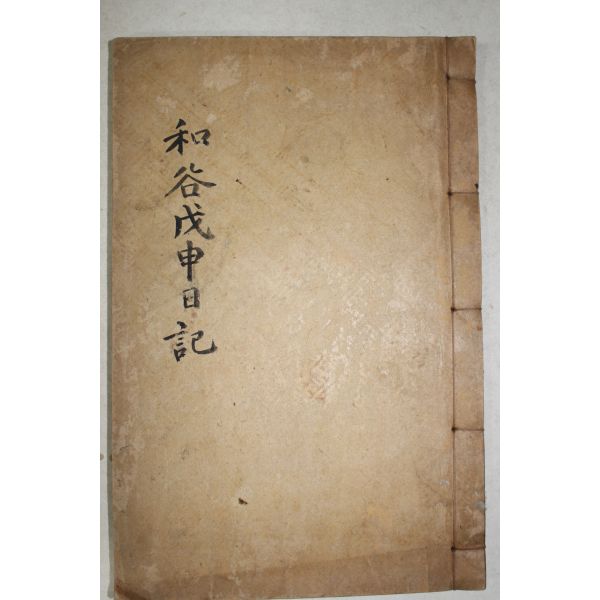 和谷戊申日記